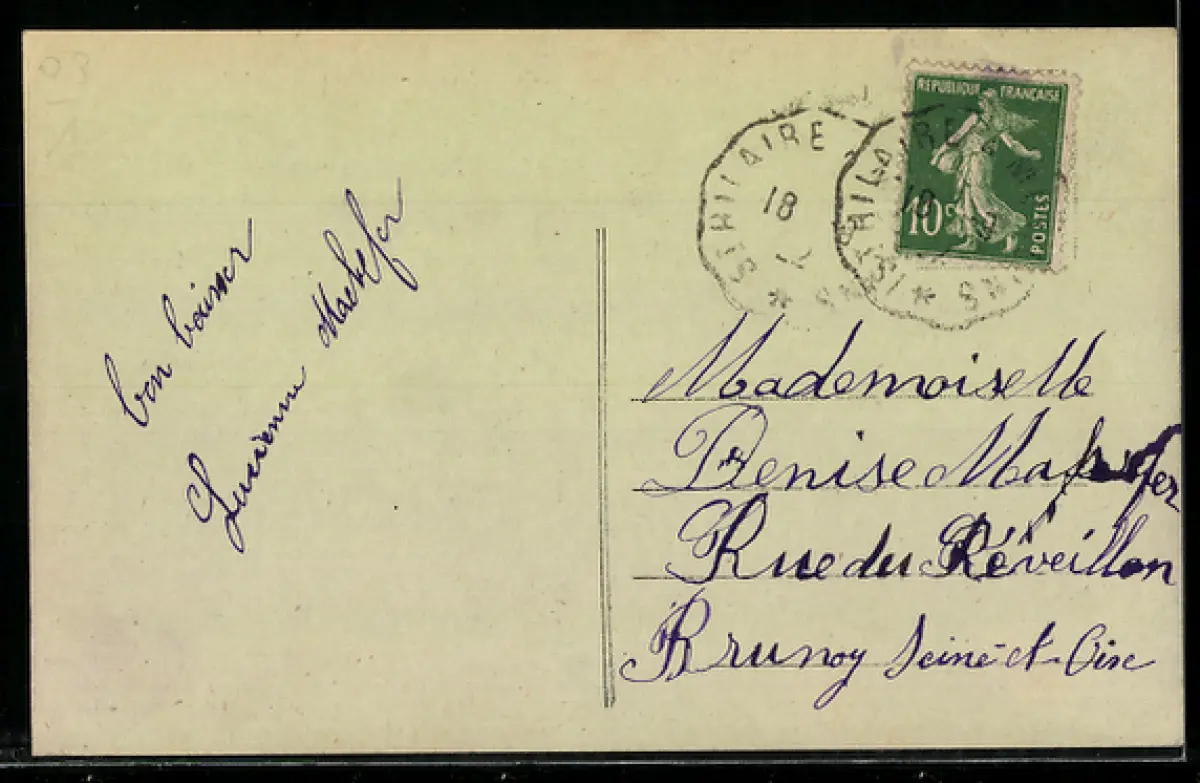 bon baiser
Lucienne
REPUBLIQUE FRANÇAISE
10c
POSTES
ST HILAIRE
18
ST HILAIRE
18
Mademoiselle
Denise
Rue du Réveillon
Brunoy Seine-et-Oise